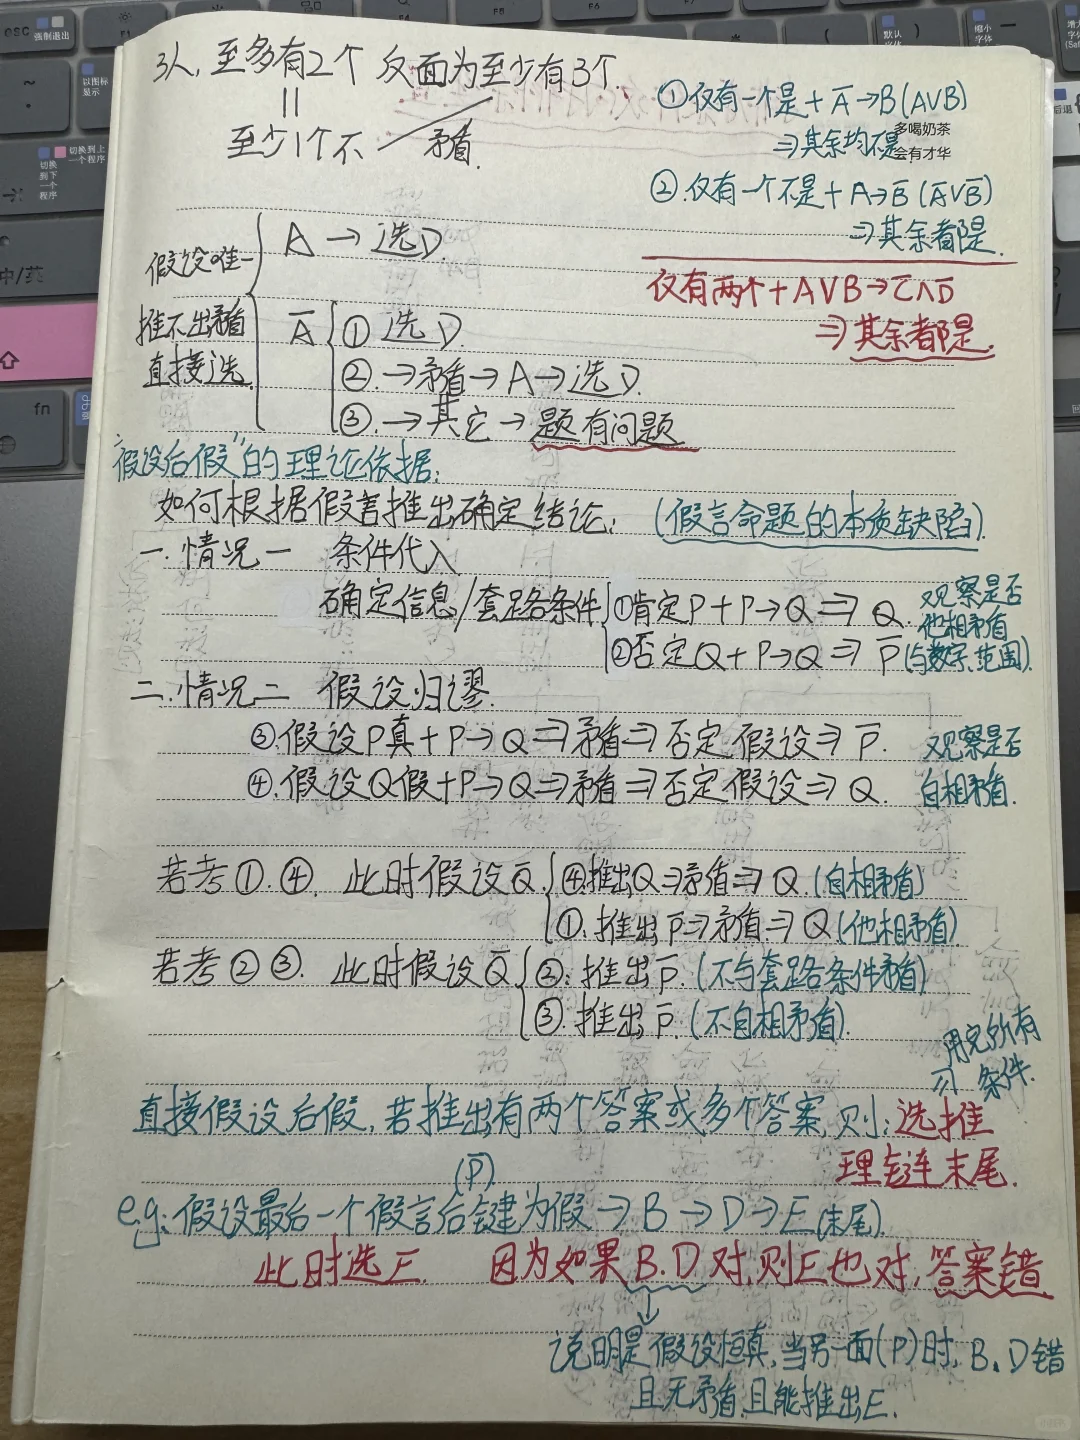 3人,至多有2个 反面为至少有3个.
||
至少1个不 矛盾.
①仅有一个是+A̅→B(A∨B)
⇒其余均不是
多喝奶茶
会有才华
②.仅有一个不是+A→B̅(A̅∨B̅)
⇒其余都是.
仅有两个+A∨B→C̅∧D̅
⇒其余都是.
假设唯一
推不出矛盾
直接选.
A→选D.
A̅
①选D.
②.→矛盾→A→选D.
③.→其它→题有问题
"假设后假"的理论依据:
如何根据假言推出确定结论: (假言命题的本质缺陷)
一.情况一 条件代入
确定信息/套路条件
①肯定P+P→Q⇒Q.
②否定Q+P→Q⇒P̅
观察是否
他相矛盾
(与数字、范围).
二.情况二 假设归谬.
③.假设P真+P→Q⇒矛盾⇒否定假设⇒P̅.
④.假设Q假+P→Q⇒矛盾⇒否定假设⇒Q.
观察是否
自相矛盾.
若考①.④. 此时假设Q̅
④推出Q⇒矛盾⇒Q.(自相矛盾)
①.推出P̅⇒矛盾⇒Q(他相矛盾)
若考②③. 此时假设Q̅
②:推出P̅.(不与套路条件矛盾)
③.推出P̅.(不自相矛盾).
用完所有
条件.
直接假设后假,若推出有两个答案或多个答案,则:选推
理链末尾.
(P̅).
e.g:假设最后一个假言后键为假→B→D→E(末尾).
此时选E. 因为如果B.D对,则E也对,答案错.
↓
说明是假设恒真,当另一面(P)时,B、D错
且无矛盾,且能推出E.